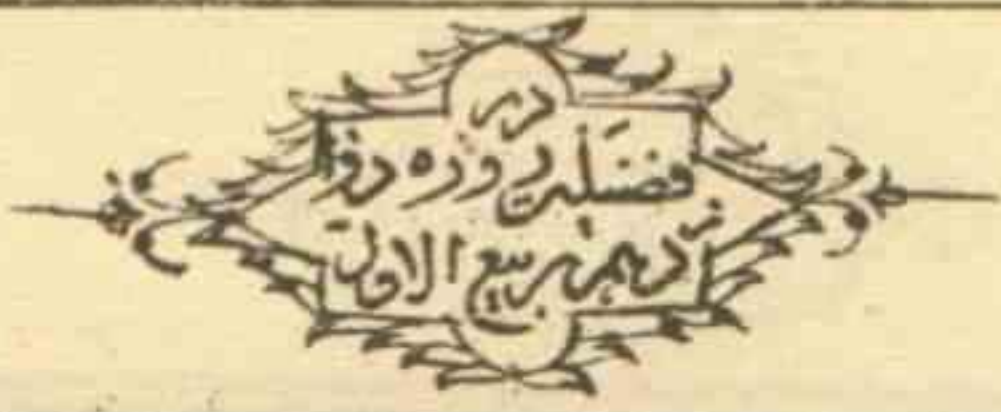 در
فضیلت روزه دوا
زدهم ربیع الاول